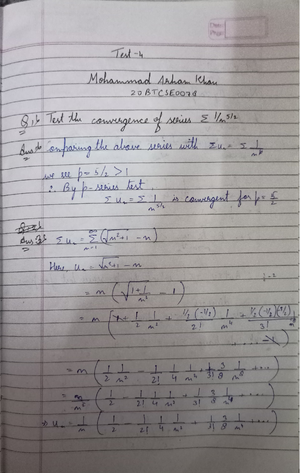 Date:
Page:
Test-4
Mohammad Arham Khan
20BTCSE0070
Q.1) Test the convergence of series Σ 1/n^5/2
Ans 1) Comparing the above series with Σ uₙ = Σ 1/n^p
we see p = 5/2 > 1
∴ By p-series test
Σ uₙ = Σ 1/n^5/2 is convergent for p = 5/2
Ans 2) Σ uₙ = Σ_{n=1}^{∞} (√(n²+1) - n)
Here, uₙ = √(n²+1) - n
= n (√(1 + 1/n²) - 1)
= n [1 + 1/2 1/n² + 1/2(-1/2)/2! 1/n⁴ + 1/2(-1/2)(-3/2)/3! ... - 1]
= n (1/2 1/n² - 1/2! 1/4 1/n⁴ + 1/3! 3/8 1/n⁶ ...)
= n/n² (1/2 - 1/2! 1/4 1/n² + 1/3! 3/8 1/n⁴ ...)
⇒ uₙ = 1/n (1/2 - 1/2! 1/4 1/n² + 1/3! 3/8 1/n⁴ ...)